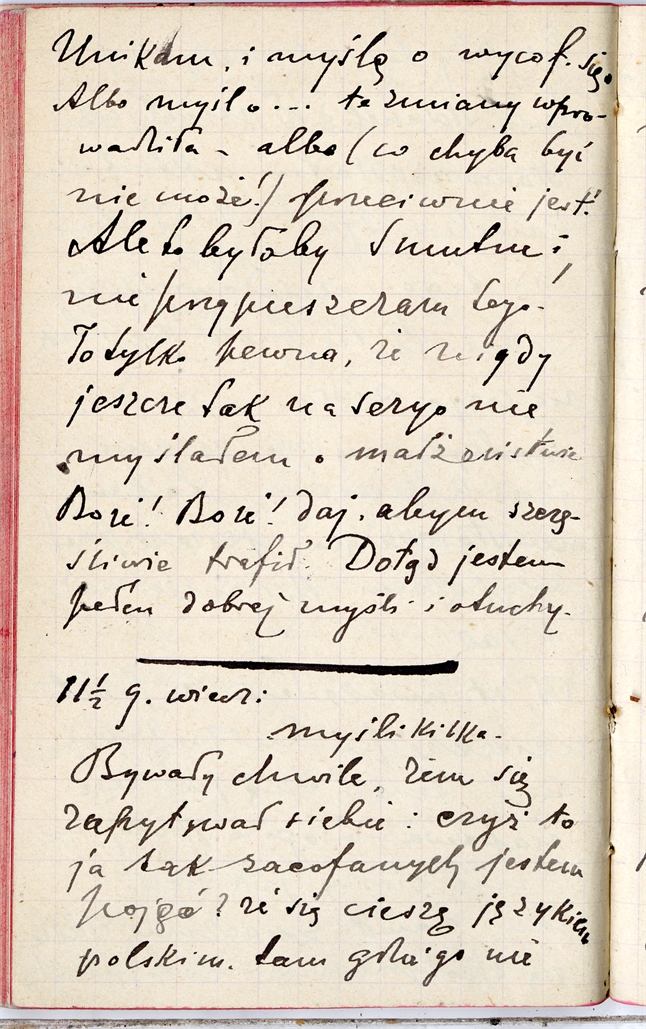 Unikam, i myślę o wycof. się.
Albo myśl o... te zmiany wpro-
wadziła - albo (co chyba być
nie może!) przeciwnie jest!
Ale to byłoby smutne i,
nie przypuszczam tego.
To tylko pewna, że nigdy
jeszcze tak na seryo nie
myślałem o małżeństwie
Boże! Boże! daj, abym szczę-
śliwie trafił. Dotąd jestem
pełen dobrej myśli i otuchy.
11½ g. wiecz:
myśli kilka.
Bywały chwile, żem się
zapytywał siebie: czyż to
ja tak zacofanych jestem
pojęć? że się cieszę językiem
polskim. tam gdzie go nie